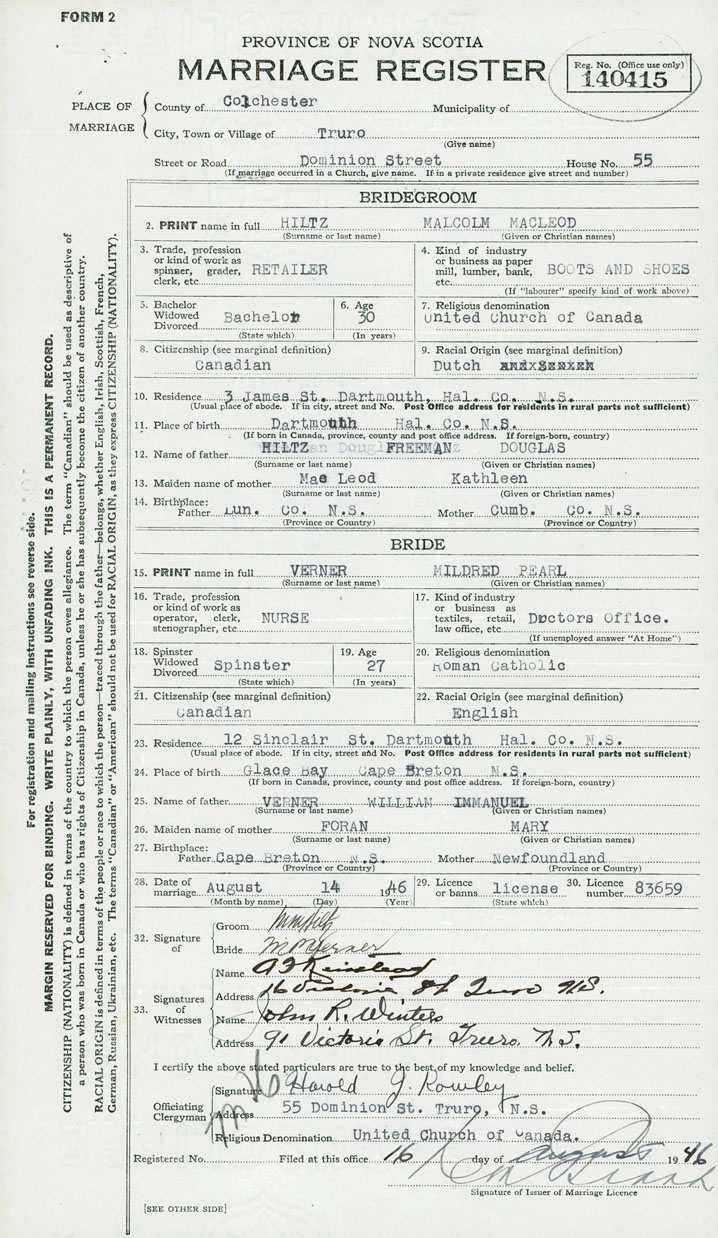 FORM 2
PROVINCE OF NOVA SCOTIA
MARRIAGE REGISTER
Reg. No. (Office use only)
140415
PLACE OF MARRIAGE
County of Colchester Municipality of
City, Town or Village of Truro
(Give name)
Street or Road Dominion Street House No. 55
(If marriage occurred in a Church, give name. If in a private residence give street and number)
BRIDEGROOM
2. PRINT name in full HILTZ MALCOLM MACLEOD
(Surname or last name) (Given or Christian names)
3. Trade, profession or kind of work as spinner, grader, clerk, etc. RETAILER
4. Kind of industry or business as paper mill, lumber, bank, etc. BOOTS AND SHOES
(If "labourer" specify kind of work above)
5. Bachelor Widowed Divorced Bachelor
(State which)
6. Age 30
(In years)
7. Religious denomination
United Church of Canada
8. Citizenship (see marginal definition)
Canadian
9. Racial Origin (see marginal definition)
Dutch
10. Residence 3 James St. Dartmouth, Hal. Co. N.S.
(Usual place of abode. If in city, street and No. Post Office address for residents in rural parts not sufficient)
11. Place of birth Dartmouth Hal. Co. N.S.
(If born in Canada, province, county and post office address. If foreign-born, country)
12. Name of father HILTZ FREEMAN DOUGLAS
(Surname or last name) (Given or Christian names)
13. Maiden name of mother Mac Leod Kathleen
(Surname or last name) (Given or Christian names)
14. Birthplace:
Father Lun. Co. N.S. Mother Cumb. Co. N.S.
(Province or Country) (Province or Country)
BRIDE
15. PRINT name in full VERNER MILDRED PEARL
(Surname or last name) (Given or Christian names)
16. Trade, profession or kind of work as operator, clerk, stenographer, etc. NURSE
17. Kind of industry or business as textiles, retail, law office, etc. Doctors Office.
(If unemployed answer "At Home")
18. Spinster Widowed Divorced Spinster
(State which)
19. Age 27
(In years)
20. Religious denomination
Roman Catholic
21. Citizenship (see marginal definition)
Canadian
22. Racial Origin (see marginal definition)
English
23. Residence 12 Sinclair St. Dartmouth Hal. Co. N.S.
(Usual place of abode. If in city, street and No. Post Office address for residents in rural parts not sufficient)
24. Place of birth Glace Bay Cape Breton N.S.
(If born in Canada, province, county and post office address. If foreign-born, country)
25. Name of father VERNER WILLIAM IMMANUEL
(Surname or last name) (Given or Christian names)
26. Maiden name of mother FORAN MARY
(Surname or last name) (Given or Christian names)
27. Birthplace:
Father Cape Breton N.S. Mother Newfoundland
(Province or Country) (Province or Country)
28. Date of marriage August 14 1946
(Month by name) (Day) (Year)
29. Licence or banns license
(State which)
30. Licence number 83659
32. Signature of
Groom
Bride M P Verner
33. Signatures of Witnesses
Name
Address 16 Victoria St Truro N.S.
Name John R. Winters
Address 91 Victoria St. Truro, N.S.
I certify the above stated particulars are true to the best of my knowledge and belief.
Officiating Clergyman
Signature Harold J. Rowley
Address 55 Dominion St. Truro, N.S.
Religious Denomination United Church of Canada.
Registered No. Filed at this office 16 day of August 1946
Signature of Issuer of Marriage Licence
[SEE OTHER SIDE]
For registration and mailing instructions see reverse side.
MARGIN RESERVED FOR BINDING. WRITE PLAINLY, WITH UNFADING INK. THIS IS A PERMANENT RECORD.
CITIZENSHIP (NATIONALITY) is defined in terms of the country to which the person owes allegiance. The term "Canadian" should be used as descriptive of
a person who was born in Canada or who has rights of Citizenship in Canada, unless he or she has subsequently become the citizen of another country.
RACIAL ORIGIN is defined in terms of the people or race to which the person—traced through the father—belongs, whether English, Irish, Scottish, French,
German, Russian, Ukrainian, etc. The terms "Canadian" or "American" should not be used for RACIAL ORIGIN, as they express CITIZENSHIP (NATIONALITY).